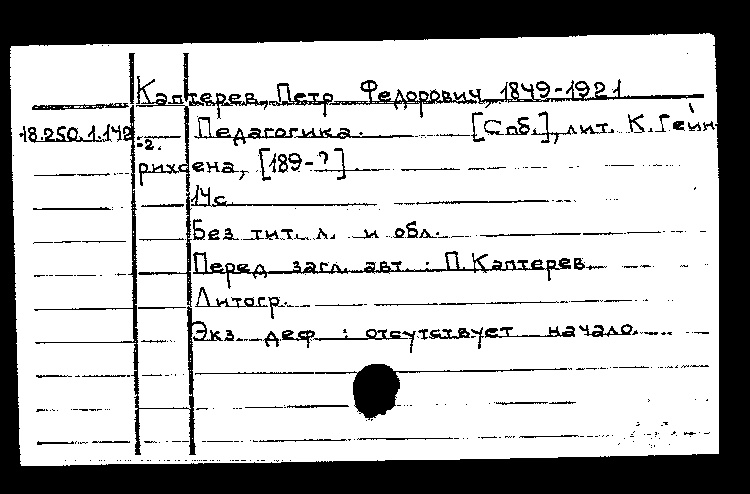 Каптерев, Петр Федорович, 1849-1921
18.250.1.142 Педагогика. [Спб.], лит. К. Гейн-
-2.
рихсена, [189-?]
14с.
Без тит. л. и обл.
Перед загл. авт.: П. Каптерев.
Литогр.
Экз. деф: отсутствует начало.